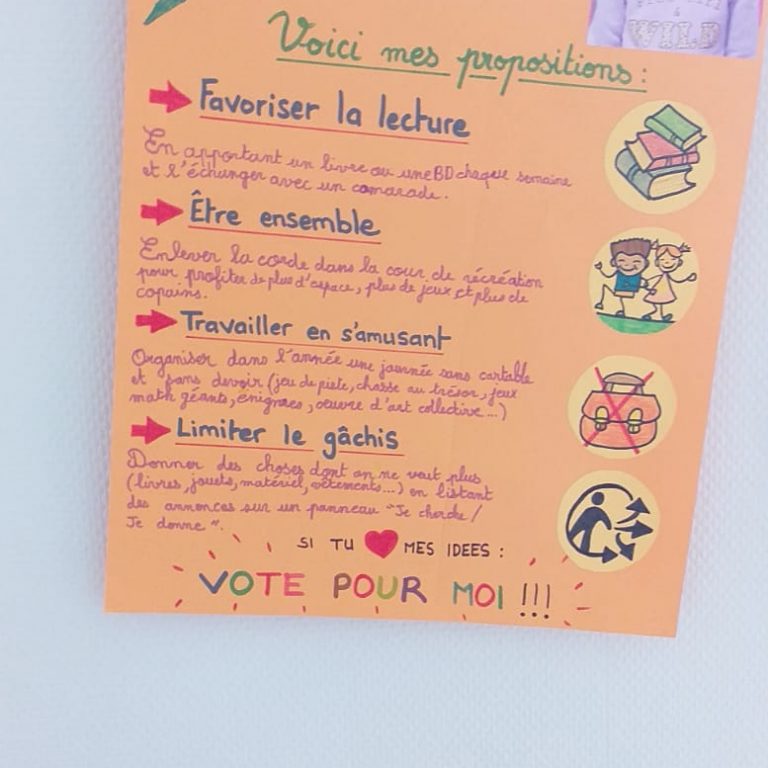 WILD
Voici mes propositions :
Favoriser la lecture
En apportant un livre ou une BD chaque semaine
et l'échanger avec un camarade.
Être ensemble
Enlever la corde dans la cour de récréation
pour profiter de plus d'espace, plus de jeux et plus de
copains.
Travailler en s'amusant
Organiser dans l'année une journée sans cartable
et sans devoir (jeu de piste, chasse au trésor, jeux
math géants, énigmes, oeuvre d'art collective...)
Limiter le gâchis
Donner des choses dont on ne veut plus
(livres, jouets, matériel, vêtements...) en listant
des annonces sur un panneau "Je cherche/
Je donne".
SI TU MES IDEES :
VOTE POUR MOI !!!